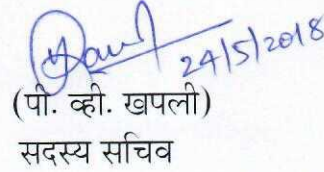 24/5/2018
(पी. व्ही. खपली)
सदस्य सचिव